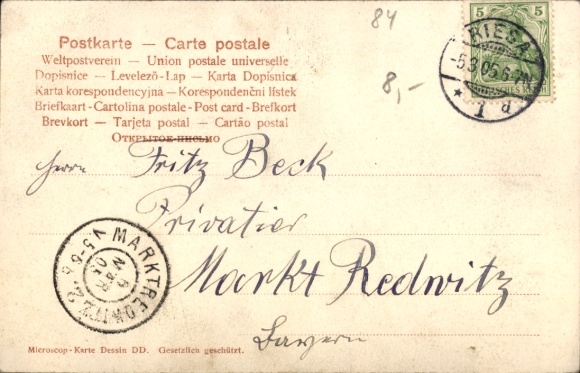 84
8,-
5 5
RIESA
-5.3.05.6-7N.
* 1 d
DEUTSCHES REICH
Postkarte — Carte postale
Weltpostverein — Union postale universelle
Dopisnice — Levelező-Lap — Karta Dopisnica
Karta korespondencyjna — Korespondenční lístek
Briefkaart - Cartolina postale - Post card - Brefkort
Brevkort — Tarjeta postal — Cartão postal
Открытое письмо
Herrn Fritz Beck
Privatier
Markt Redwitz
Bayern
MARKTREDWITZ 2.
Microscop-Karte Dessin DD. Gesetzlich geschützt.